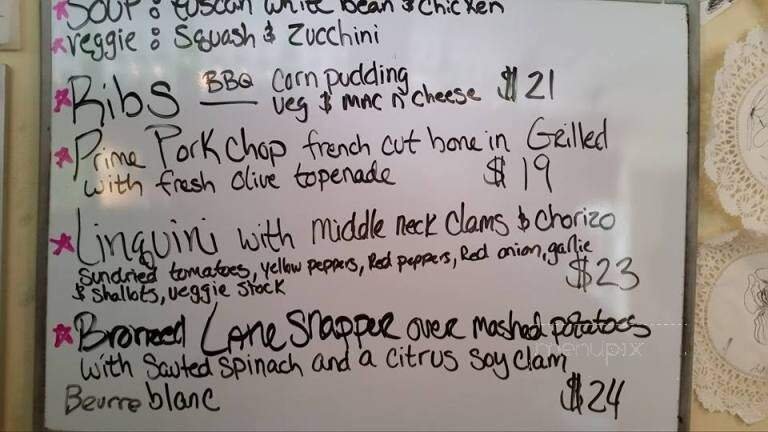 Soup: tuscan white bean & chicken
veggie: Squash & Zucchini
Ribs BBQ corn pudding $21
veg & mac n cheese
Prime Pork chop french cut bone in Grilled
with fresh olive topenade $19
Linquini with middle neck clams & chorizo
sundried tomatoes, yellow peppers, Red peppers, Red onion, garlic
& shallots, veggie stock $23
Bronned Lane Snapper over mashed potatoes
with Sauted spinach and a citrus soy clam
Beurre blanc $24
menupix